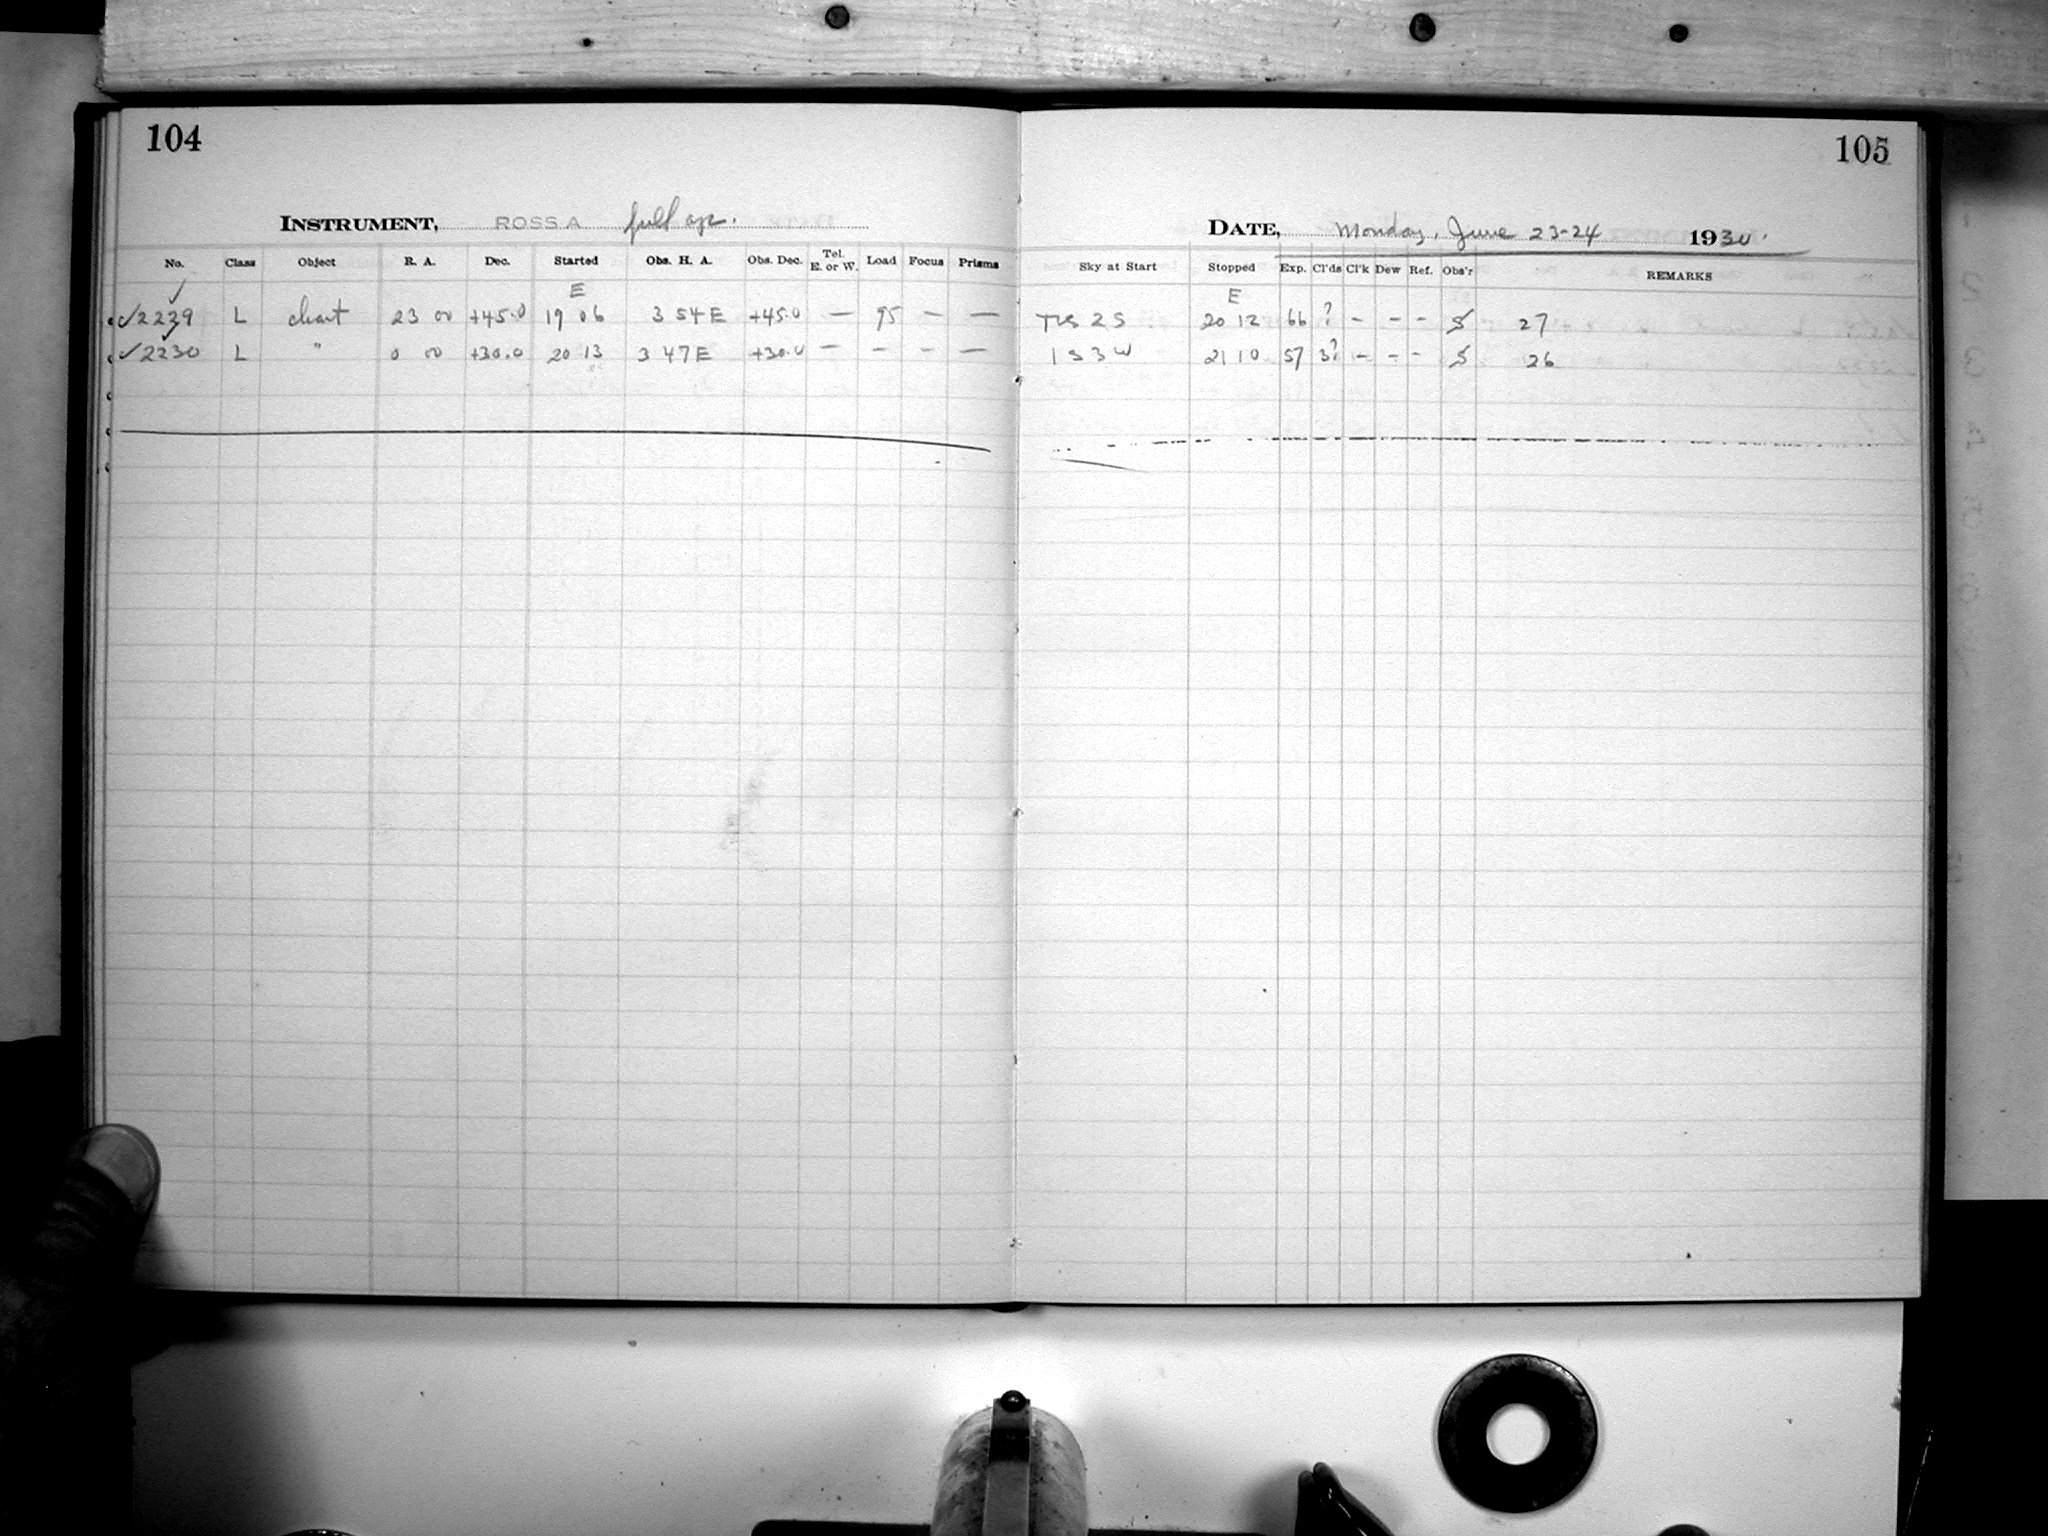 104
105
INSTRUMENT, ROSS A full ap.
DATE, Monday, June 23-24 1930.
No. Class Object R. A. Dec. Started Obs. H. A. Obs. Dec. Tel. E. or W. Load Focus Prisms Sky at Start Stopped Exp. Cl'ds Cl'k Dew Ref. Obs'r REMARKS
E E
✓2229 L chart 23 00 +45.0 19 06 3 54 E +45.0 — 95 — — 2 S 20 12 66 ? - - - 27
✓2230 L " 0 00 +30.0 20 13 3 47 E +30.0 — - - — 1 S 3 W 21 10 57 3? - - - 26